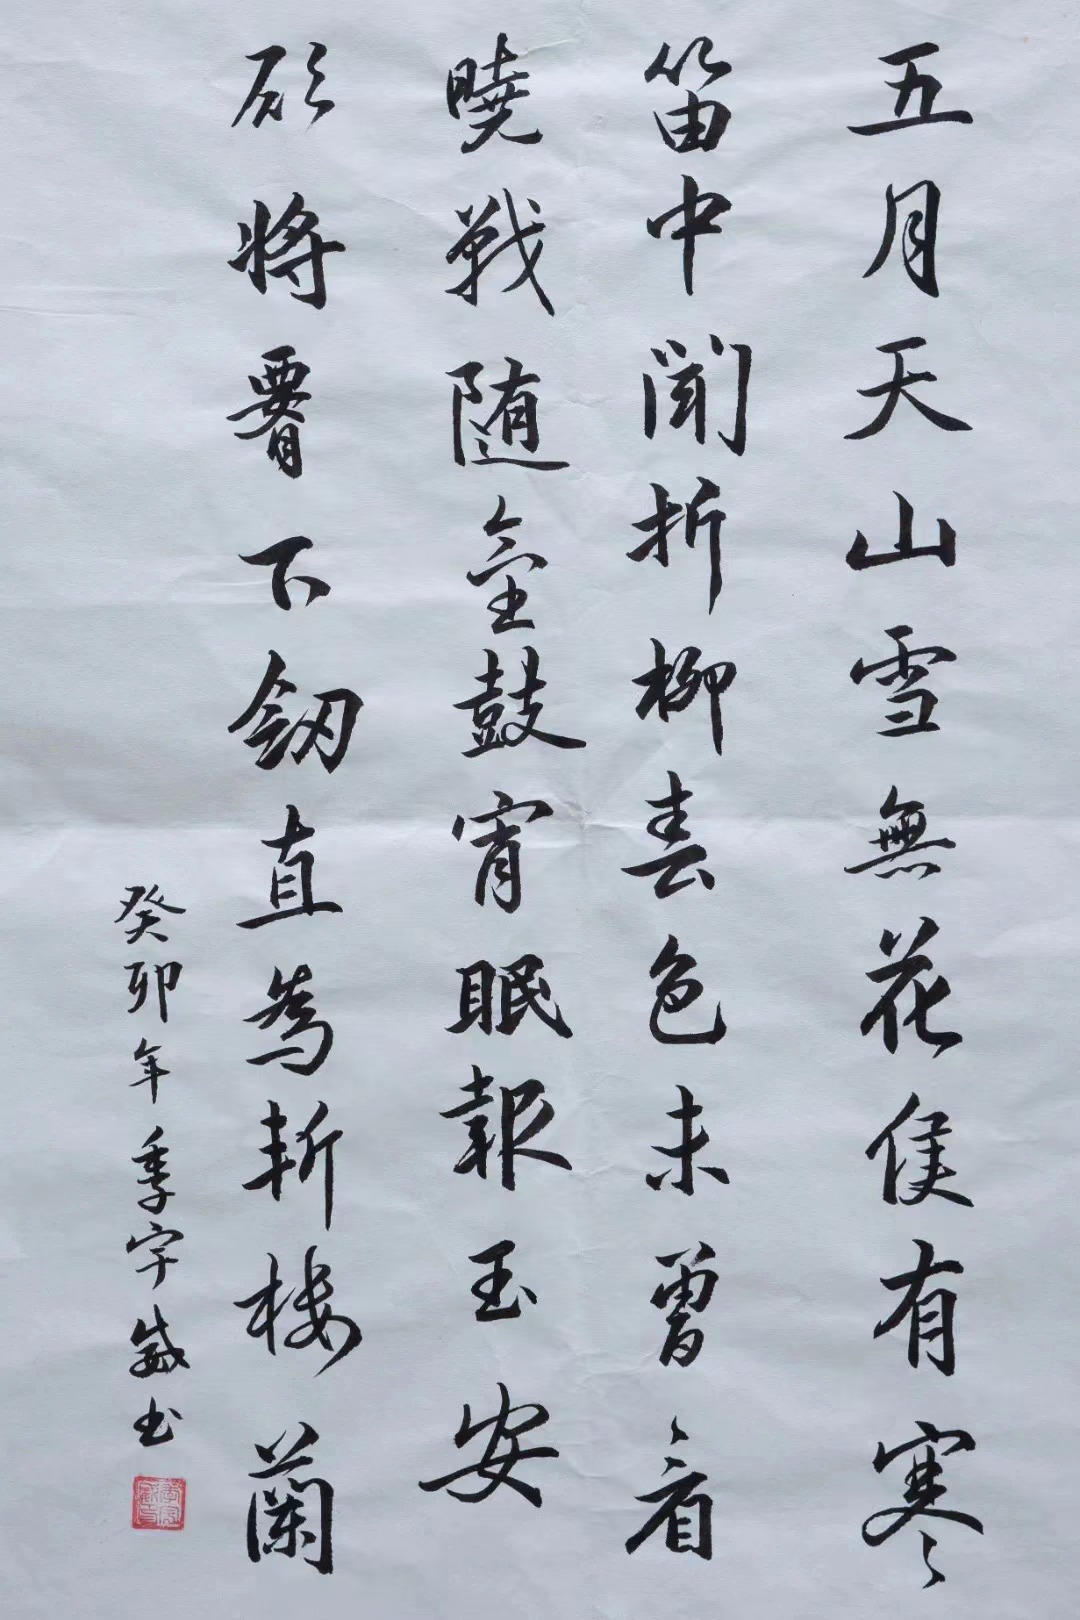 五月天山雪無花侯有寒
笛中聞折柳春色未曾看
曉戰随金鼓宵眠報玉安
願将腰下釰直為斬楼蘭
癸卯年季宇书